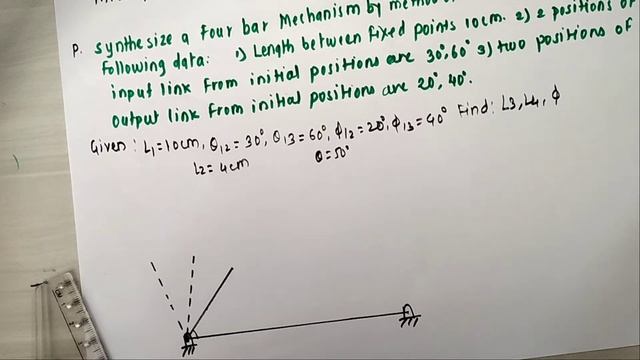 P. Synthesize a Four bar Mechanism by method
following data: 1) Length between fixed points 10cm. 2) 2 positions of
input link from initial positions are 30°, 60° 3) two positions of
output link from initial positions are 20°, 40°.
Given: L1=10cm, θ12=30°, θ13=60°, ϕ12=20°, ϕ13=40° Find: L3, L4, ϕ
L2=4cm θ=50°